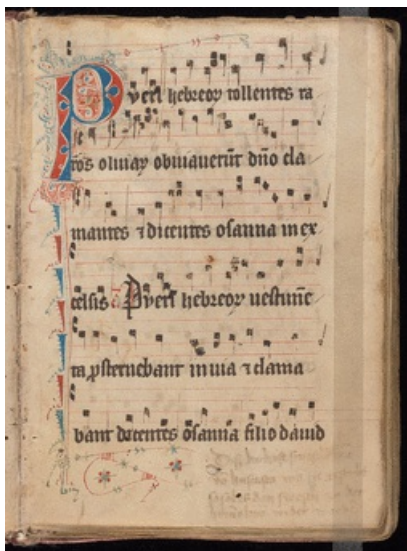 Pueri hebreoꝝ tollentes ra
mos oliuaꝝ obuiauerūt dn̄o cla
mantes ⁊ dicentes osanna in ex
celsis Pueri hebreoꝝ uestime
ta ꝓsternebant in uia ⁊ clama
bant dicentes osanna filio dauid